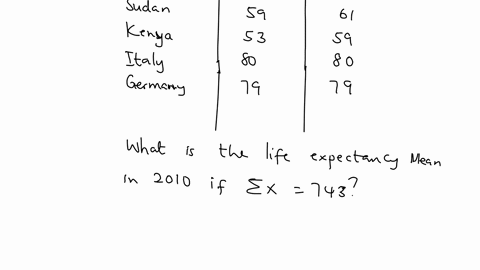 Sudan 59 61
Kenya 53 59
Italy 80 80
Germany 79 79
What is the life expectancy Mean
in 2010 if Σx = 743?